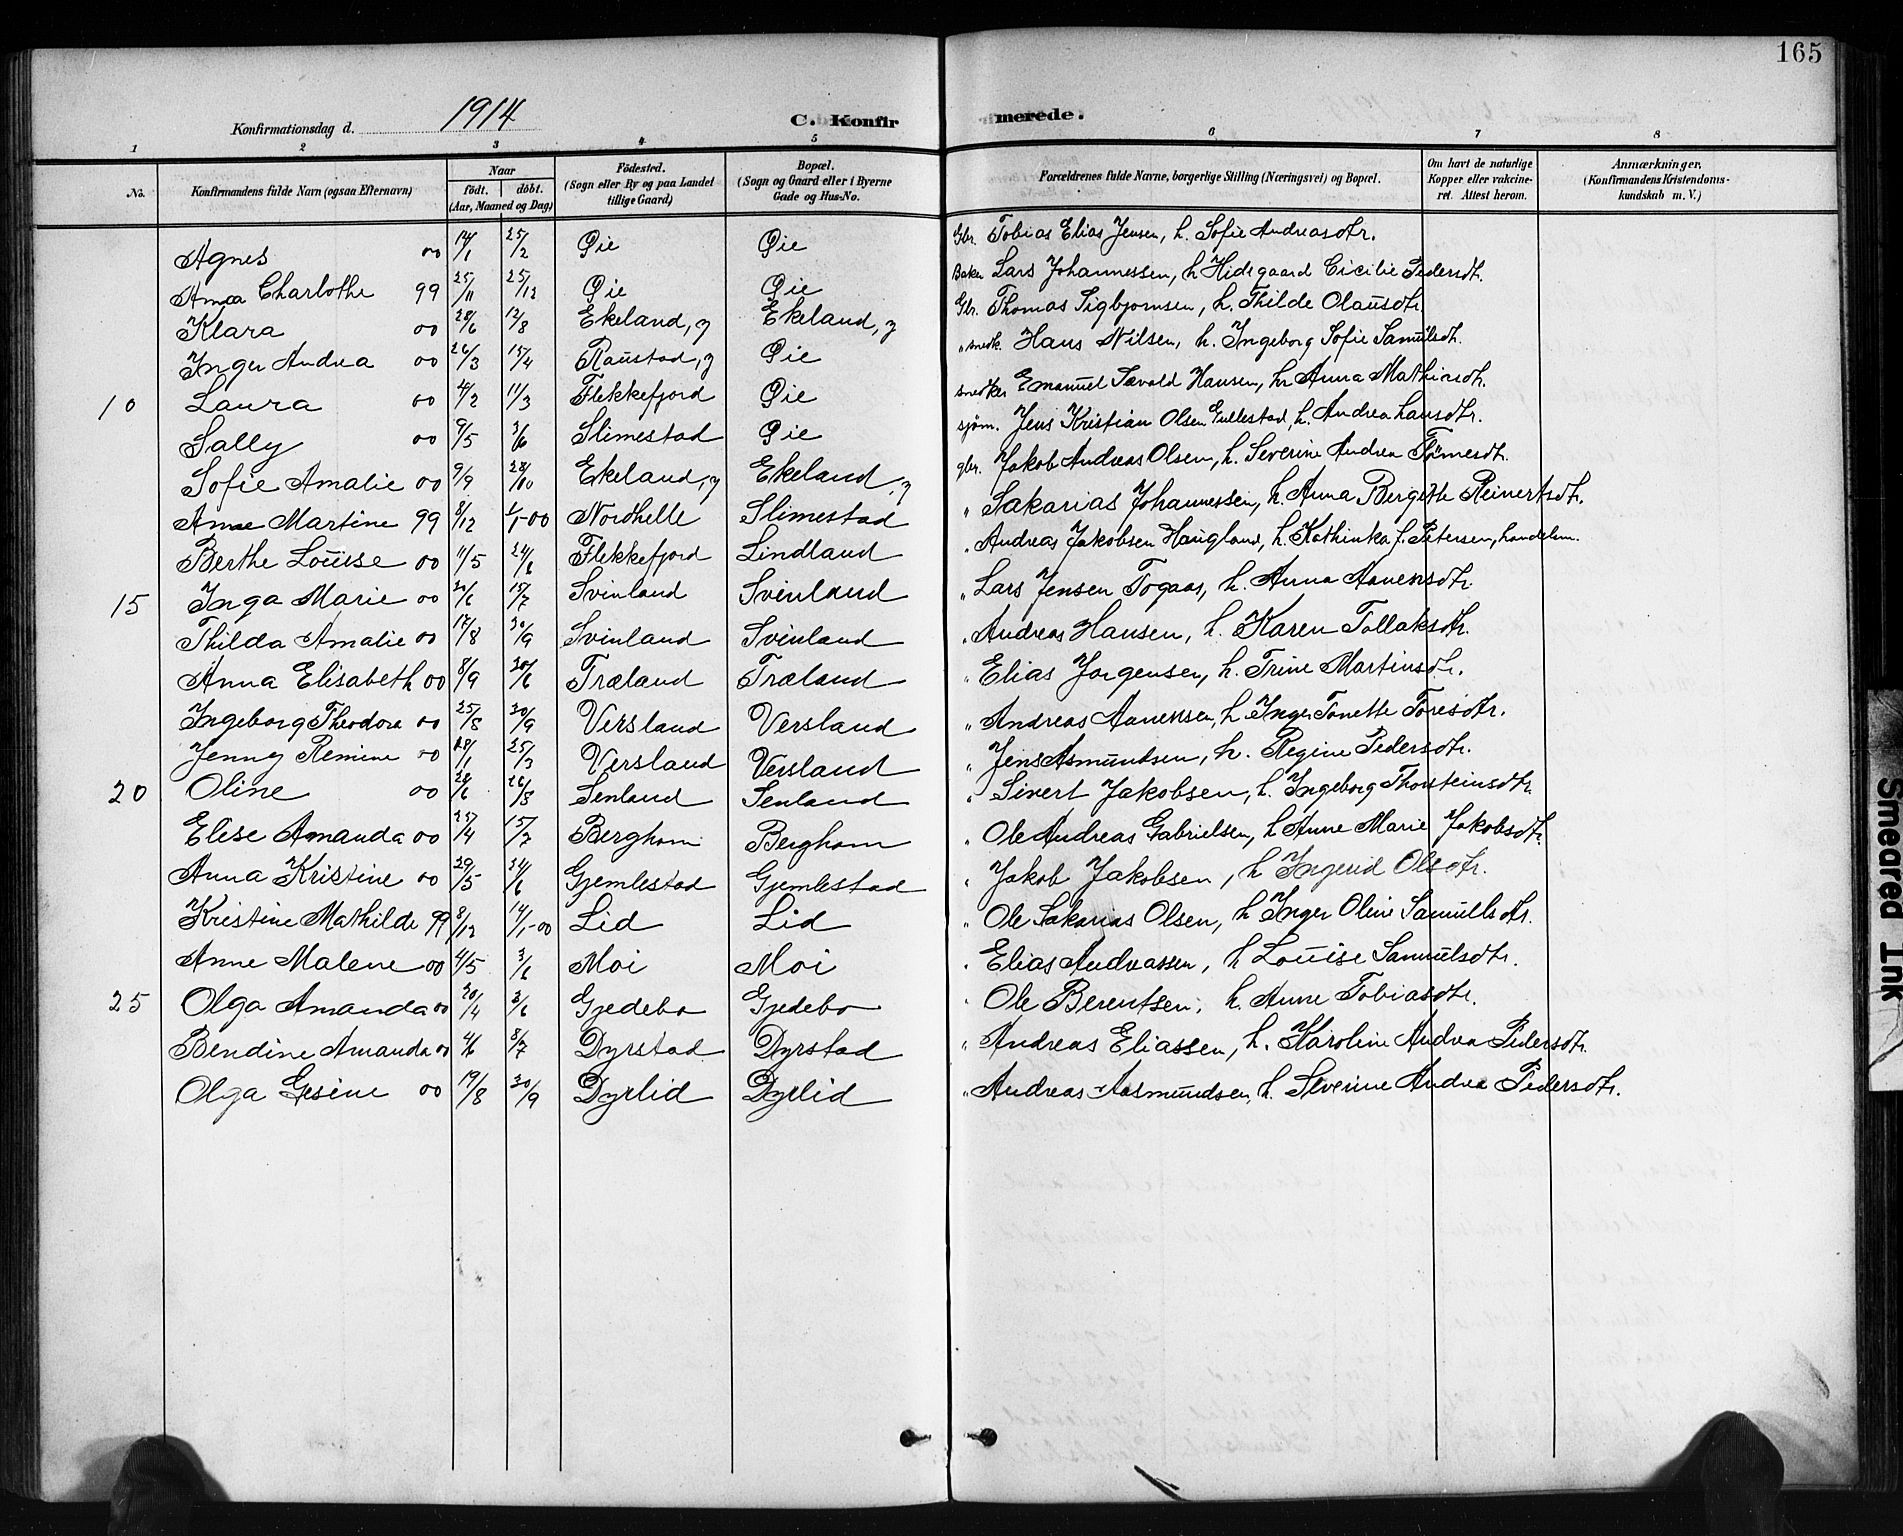 165
Konfirmationsdag d. 1914 C. Konfirmerede.
1 2 3 4 5 6 7 8
No. Konfirmandens fulde Navn (ogsaa Efternavn) Naar födt. döbt. (Aar, Maaned og Dag) Födested. (Sogn eller By og paa Landet tillige Gaard) Bopæl. (Sogn og Gaard eller i Byerne Gade og Hus-No. Forældrenes fulde Navne, borgerlige Stilling (Næringsvei) og Bopæl. Om havt de naturlige Kopper eller vakcineret. Attest herom. Anmærkninger, (Konfirmandens Kristendomskundskab m. V.)
Agnes 00 14/1 25/2 Øie Øie Gbr. Tobias Elias Jensen, h. Sofie Andreasdtr.
Anna Charlothe 99 25/11 25/12 Øie Øie Baker Lars Johannessen, h Hidegaard Cicilie Pedersdt.
Klara 00 28/6 12/8 Ekeland, y Ekeland, y Gbr. Thomas Sigbjornsen, h. Thilde Olausdtr.
Inger Andrea 00 26/3 15/4 Raustad, y Øie " snedk. Hans Nilsen, h. Ingeborg Sofie Samülsdt.
10 Laura 00 4/2 11/3 Flekkefjord Øie snedker Emanuel Sævald Hansen, h. Anna Mathisdt.
Sally 00 9/5 3/6 Slimestad Øie sjøm. Jens Kristian Olsen Gullestad, h. Andrea Larsdtr.
Sofie Amalie 00 9/9 28/10 Ekeland, y Ekeland, y gbr. Jakob Andreas Olsen, h. Severine Andrea Tönnesdt.
Anne Martine 99 8/12 1/1-00 Nordhelle Slimestad " Sakarias Johannessen, h. Anna Bergitte Reinertsdtr.
Berthe Louise 00 11/5 24/6 Flekkefjord Lindland " Andreas Jakobsen Haugland, h. Kathinka f. Petersen, handelsm.
15 Inga Marie 00 20/6 15/7 Svinland Svinland " Lars Jensen Togaas, h. Anna Aanensdtr.
Thilda Amalie 00 17/8 30/9 Svinland Svinland " Andreas Hansen, h. Karen Tollaksdtr.
Anna Elisabeth 00 8/9 30/6 Træland Træland " Elias Jørgensen, h. Trine Martinsdtr.
Ingeborg Theodora 00 25/8 30/9 Versland Versland " Andreas Aanensen, h Inger Tonette Toresdtr.
Jenny Remine 00 28/1 25/3 Versland Versland " Jens Asmundsen, h. Regine Pedersdtr.
20 Oline 00 24/6 26/8 Senland Senland " Sivert Jakobsen, h. Ingeborg Thorsteinsdtr.
Elise Amanda 00 25/4 15/7 Berghom Berghom " Ole Andreas Gabrielsen, h Anne Marie Jakobsdtr.
Anna Kristine 00 29/5 24/6 Gjemlestad Gjemlestad " Jakob Jakobsen, h Ingerid Olsdtr.
Kristine Mathilde 99 8/12 14/1-00 Lid Lid " Ole Sakarias Olsen, h Inger Oline Samuelsdtr.
Anne Malene 00 4/5 3/6 Moi Moi " Elias Andreassen, h Louise Samülsdtr.
25 Olga Amanda 00 20/4 3/6 Gjedebo Gjedebo " Ole Berentsen, h. Anne Tobiasdtr.
Bendine Amanda 00 4/6 8/7 Dyrstad Dyrstad " Andreas Eliassen, h. Karoline Andrea Pedersdtr.
Olga Gesine 00 19/8 30/9 Dyrlid Dyrlid " Andreas Aasmundsen, h. Severine Andrea Pedersdtr.
Smeared Ink